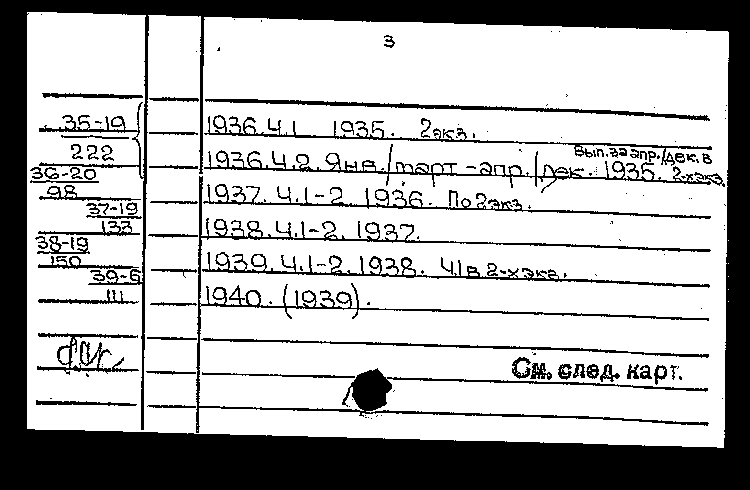 3
35-19 1936.Ч.1 1935. 2экз.
222 вып. за апр./дек. в
1936.Ч.2. Янв./март-апр./дек. 1935. 2-хэкз.
36-20
98 1937.Ч.1-2. 1936. По 2экз.
37-19
133 1938.Ч.1-2. 1937.
38-19
150 1939.Ч.1-2. 1938. Ч.1 в 2-хэкз.
39-6
111 1940. (1939).
См. след. карт.